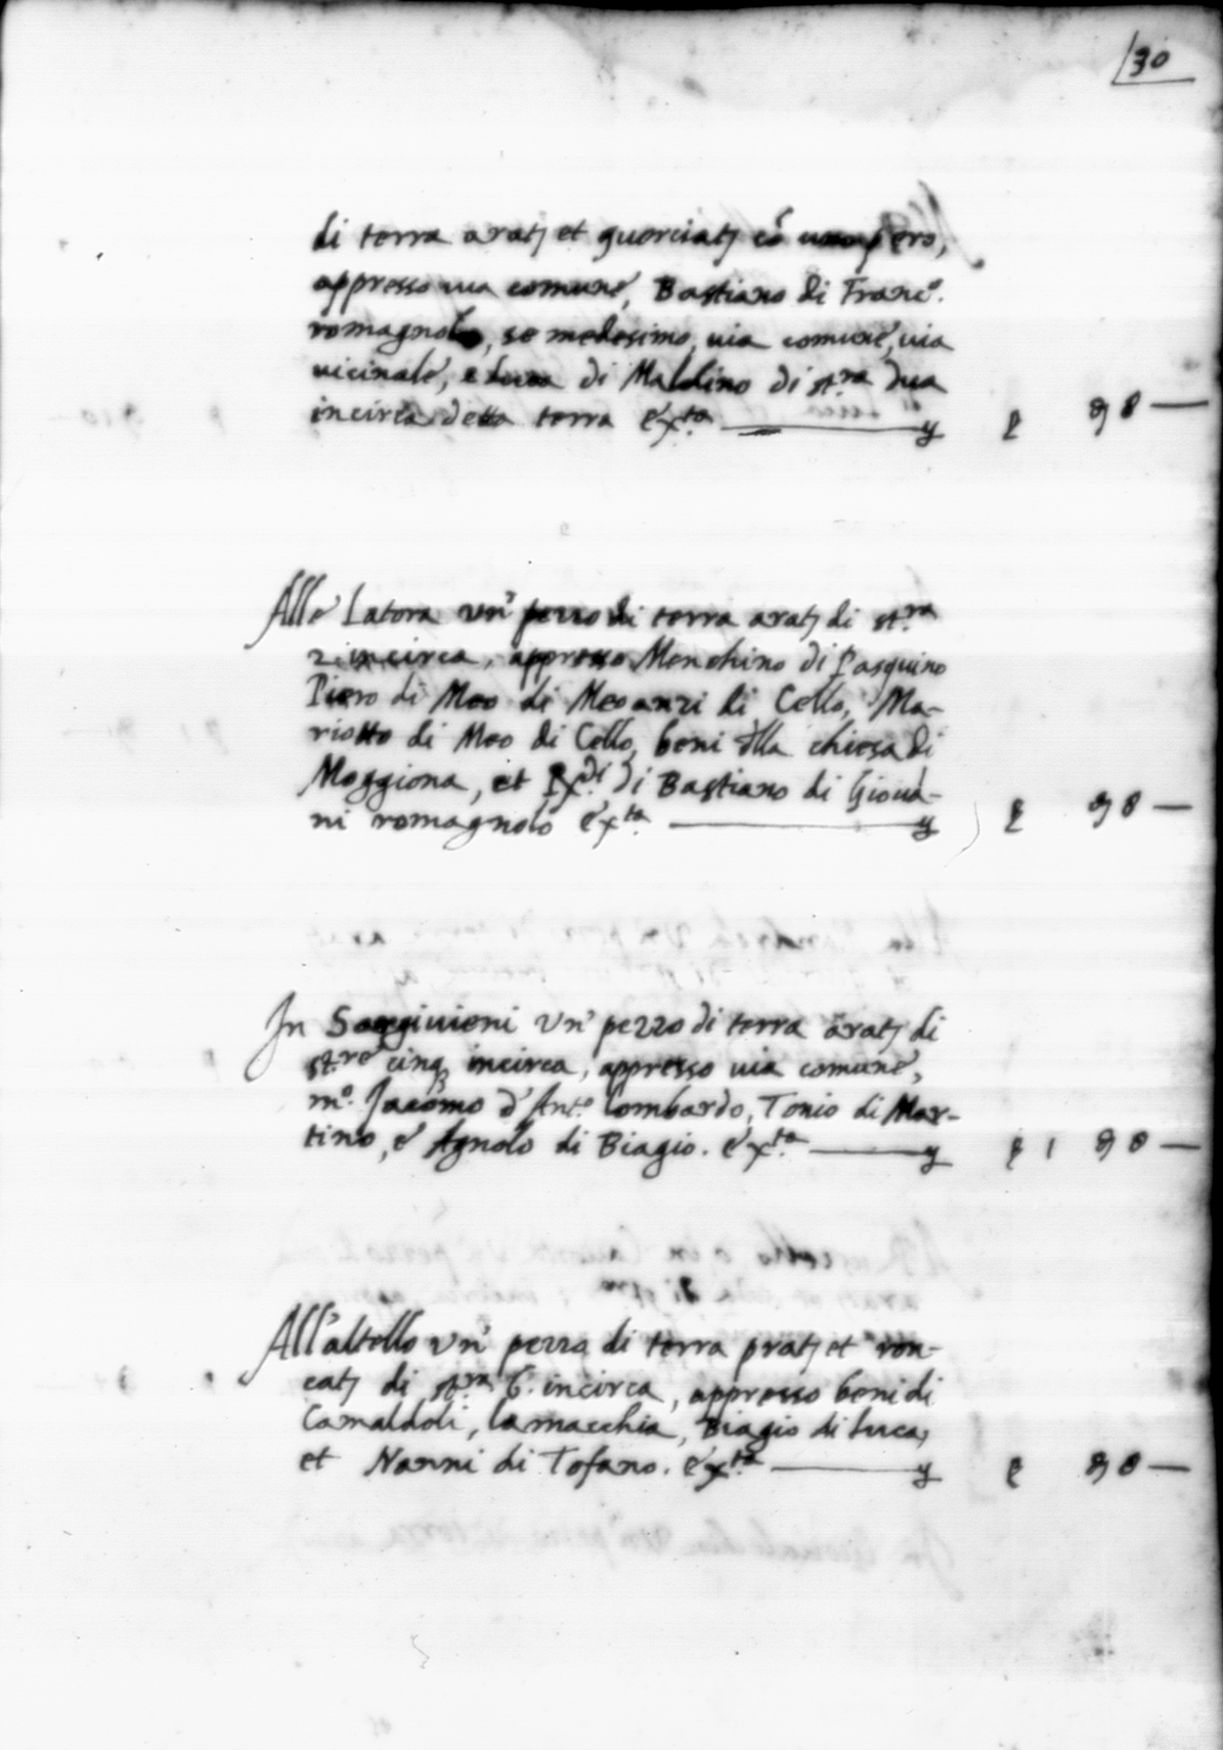 30
di terra arat. et querciat. cō uno pero,
appresso via comune, Bastiano di Franc.º
romagnolo, se medesimo, via comune, via
vicinale, e Luca di Maldino di st.ra dua
incirca detta terra ext.a
Alle Latora un' pezzo di terra arat. di st.ra
2 incirca, appresso Menchino di Pasquino
Piero di Meo di Meoanzi di Cello, Ma-
riotto di Meo di Cello, beni dlla chiesa di
Moggiona, et di Bastiano di Giouā-
ni romagnolo ext.a
In un' pezzo di terra arat. di
st.re cinq. incirca, appresso via comune,
m.º Jacomo d' Ant.º Lombardo, Tonio di Mar-
tino, e Agnolo di Biagio. ext.a
All'altello un' pezzo di terra prat. et ron-
cat. di st.ra 6. incirca, appresso beni di
Camaldoli, la macchia, Biagio di Luca,
et Nanni di Tofano. ext.a